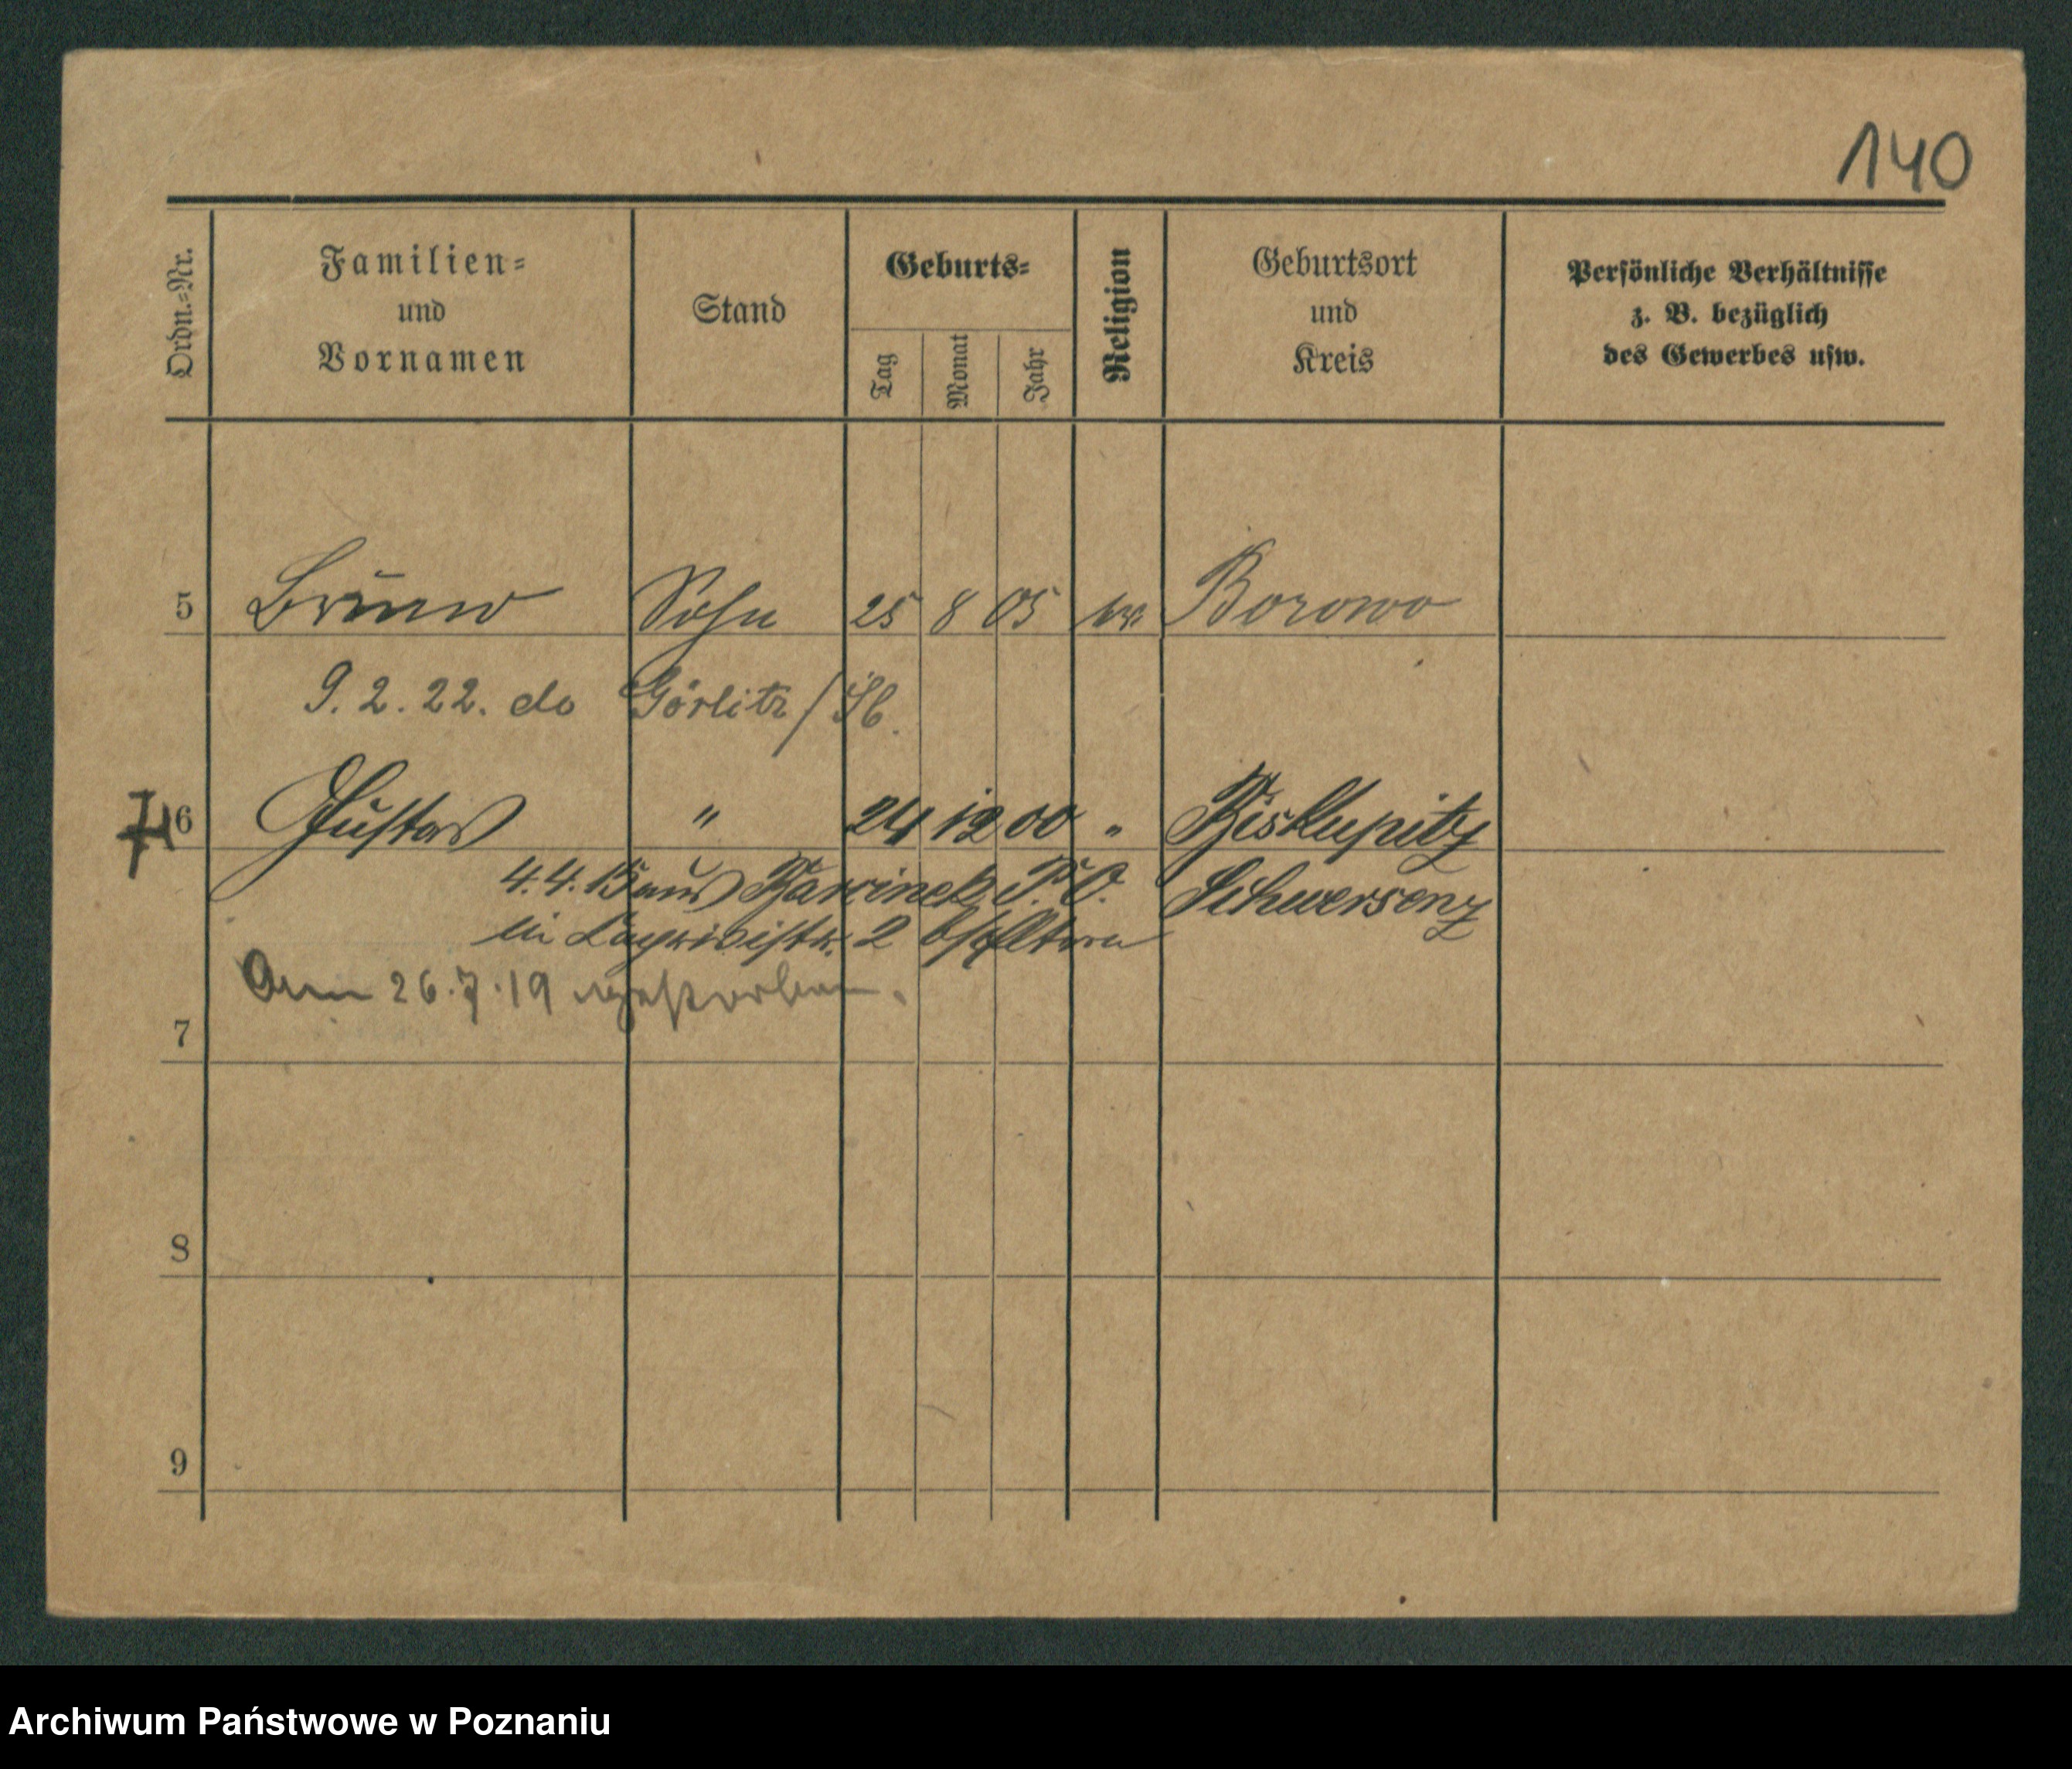 140
Ordn.=Nr.
Familien=
und
Vornamen
Stand
Geburts=
Tag
Monat
Jahr
Religion
Geburtsort
und
Kreis
Persönliche Verhältnisse
z. B. bezüglich
des Gewerbes usw.
5 Bruno Sohn 25 8 05 Borowo
9.2.22. do Görlitz /
6 Gustav " 24 12 00 " Biskupitz
4.4.15 aus P.O. Schwersenz
in 2 Eltern
Am 26.7.19 gestorben.
7
8
9
Archiwum Państwowe w Poznaniu